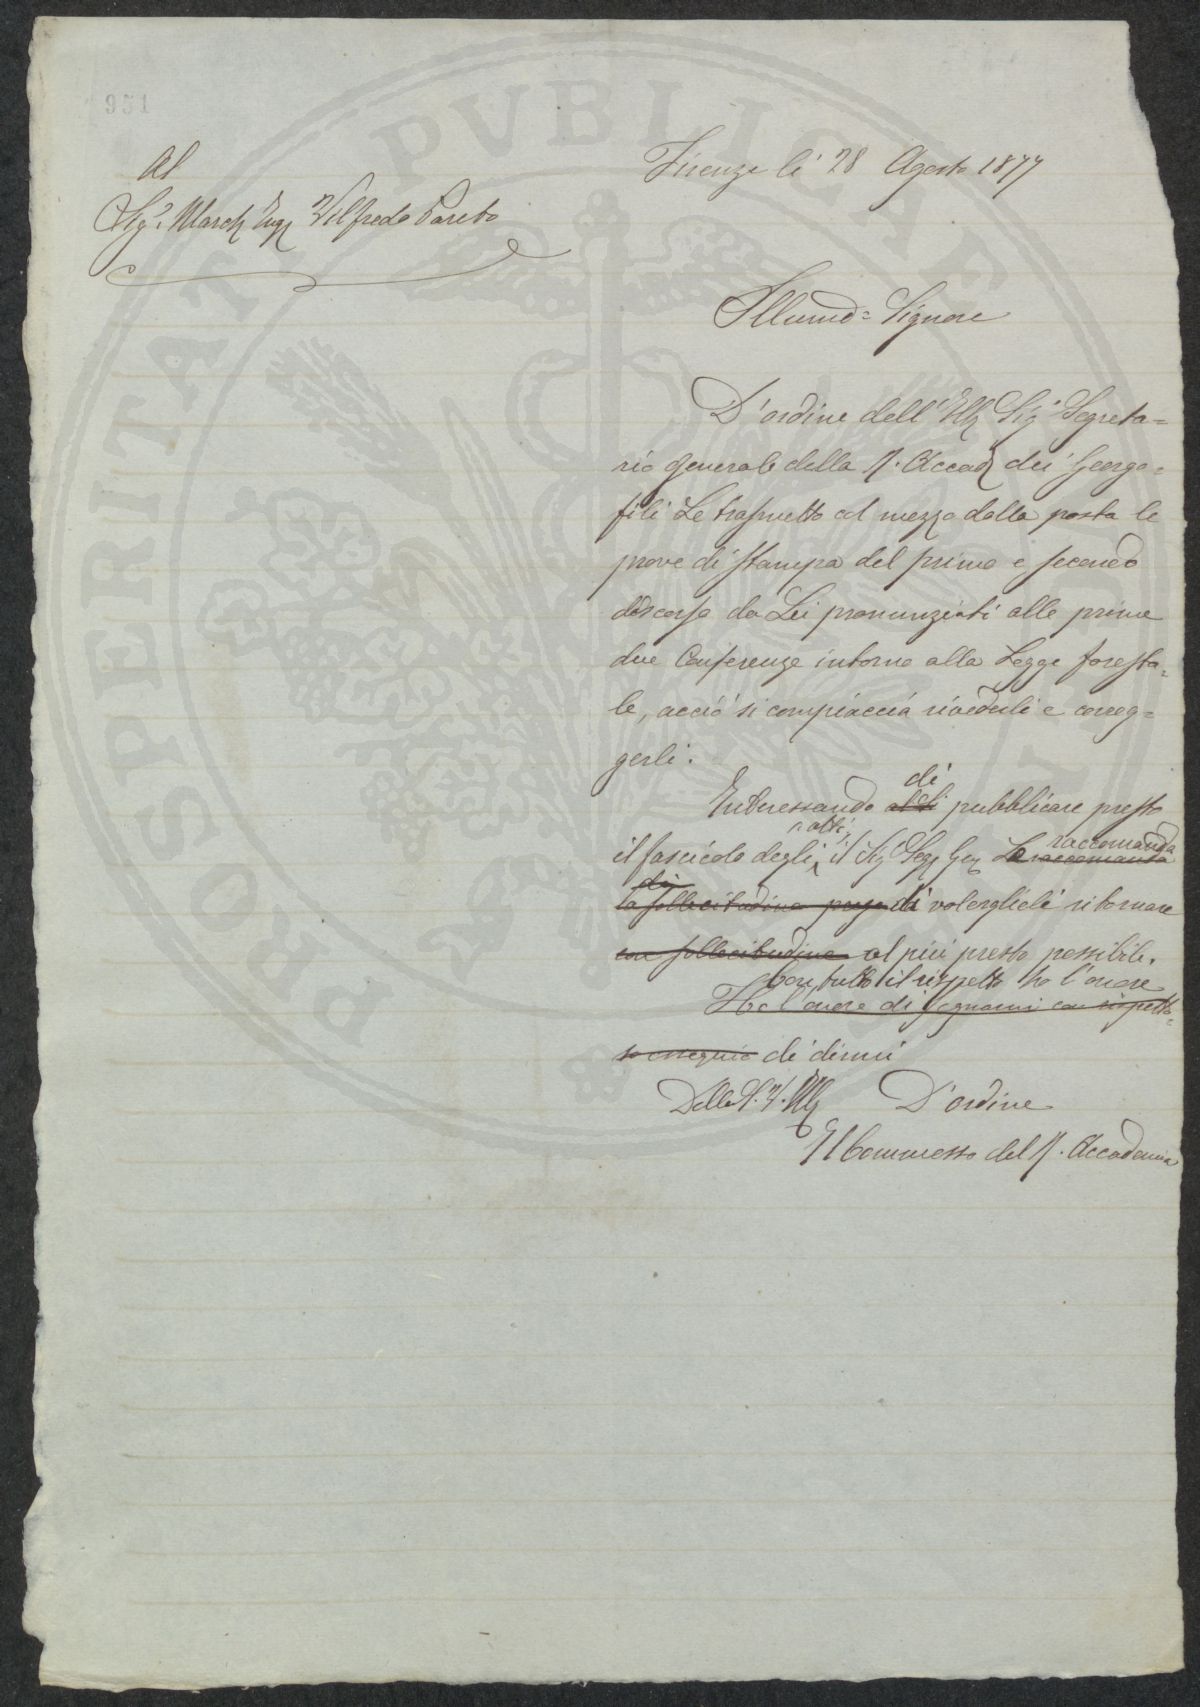 951
Firenze li 28 Agosto 1877
Al
Sigr. March Ing Vilfredo Pareto
Illumo= Signore
D'ordine dell'Ill Sigr Segreta=
rio generale della R. Accad dei Georgo=
fili Le trasmetto col mezzo della posta le
prove di stampa del primo e secondo
discorso da Lei pronunziati alle prime
due Conferenze intorno alla Legge foresta=
le, acciò si compiaccia rivederli e correg=
gerli.
di
Interessando pubblicare presto
atti, raccomanda
il fascicolo degli il Sigr Segr Gen Le raccomanda
di
la sollecitudine di volerglieli ritornare
con sollecitudine al più presto possibile.
Con tutto il rispetto ho l'onore
Ho l'onore di segnarmi con rispetto=
so ossequio di dirmi
Della S. V. Ill D'ordine
Il Commesso del R. Accademia
PUBLICAE PROSPERITATI